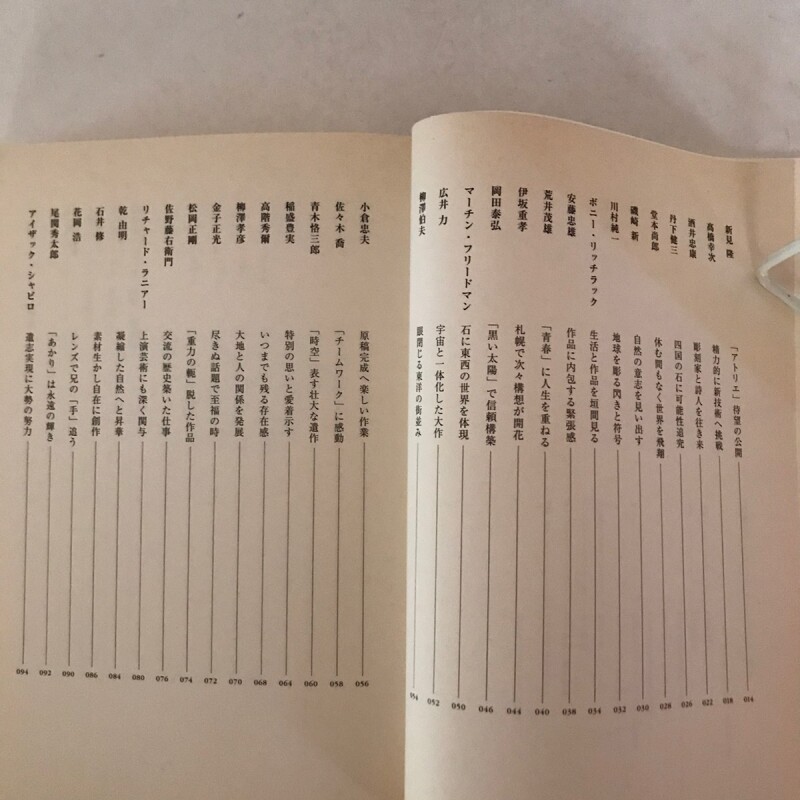 新見 隆 「アトリエ」待望の公開 014
高橋幸次 精力的に新技術へ挑戦 018
酒井忠康 彫刻家と詩人を往き来 022
丹下健三 四国の石に可能性追究 026
堂本尚郎 休む間もなく世界を飛翔 028
磯崎 新 自然の意志を見い出す 030
川村純一 地球を彫る閃きと符号 032
ボニー・リッチラック 生活と作品を垣間見る 034
安藤忠雄 作品に内包する緊張感 038
荒井茂雄 「青春」に人生を重ねる 040
伊坂重孝 札幌で次々構想が開花 044
岡田泰弘 「黒い太陽」で信頼構築 046
マーチン・フリードマン 石に東西の世界を体現 050
広井 力 宇宙と一体化した大作 052
柳澤伯夫 眼閉じる東洋の街並み 054
小倉忠夫 原稿完成へ楽しい作業 056
佐々木 喬 「チームワーク」に感動 058
青木恪三郎 「時空」表す壮大な遺作 060
稲盛豊実 特別の思いと愛着示す 064
高階秀爾 いつまでも残る存在感 068
柳澤孝彦 大地と人の関係を発展 070
金子正光 尽きぬ話題で至福の時 072
松岡正剛 「重力の軛」脱した作品 074
佐野藤右衛門 交流の歴史築いた仕事 076
リチャード・ラニアー 上演芸術にも深く関与 080
乾 由明 凝縮した自然へと昇華 084
石井 修 素材生かし自在に創作 086
花岡 浩 レンズで兄の「手」追う 090
尾関秀太郎 「あかり」は永遠の輝き 092
アイザック・シャピロ 遺志実現に大勢の努力 094